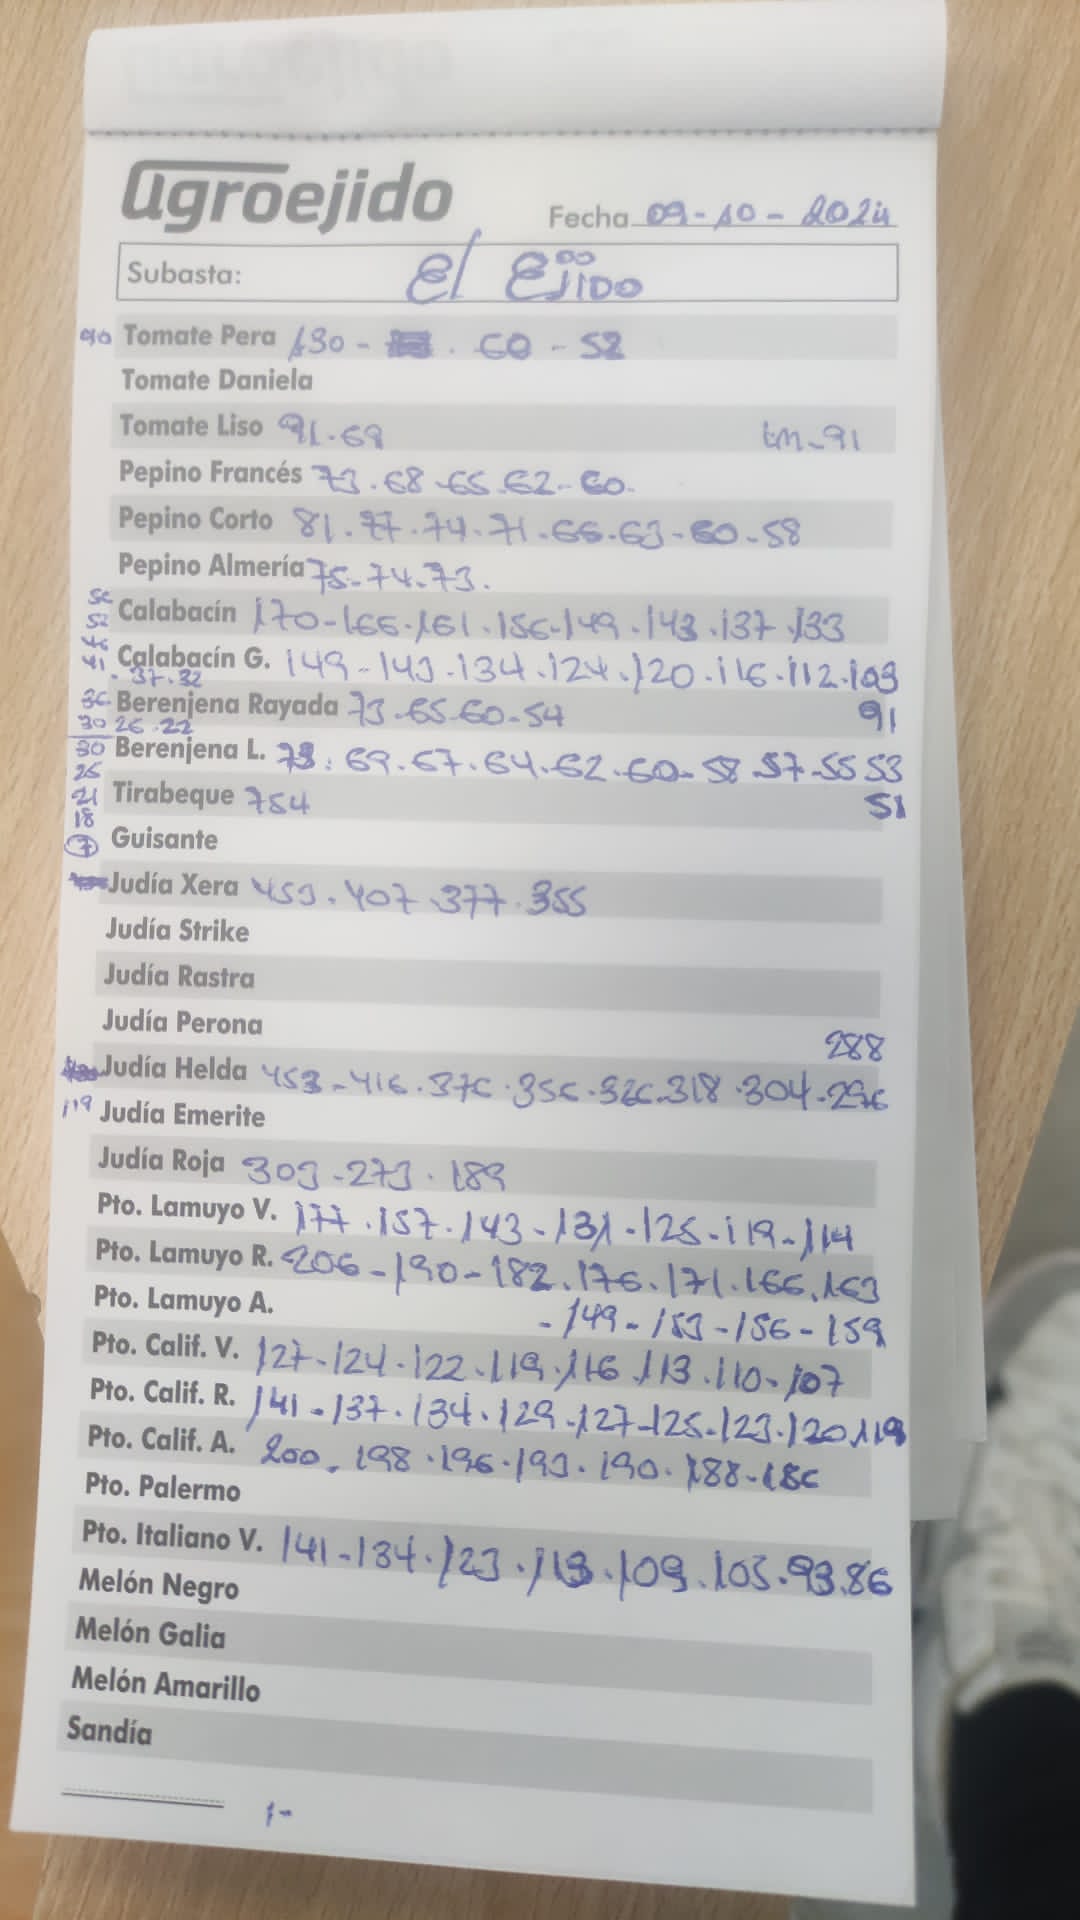 agroejido
Fecha 09-10-2024
Subasta: El Ejido
90 Tomate Pera 130 - 60 - 52
Tomate Daniela
Tomate Liso 91.69 tm-91
Pepino Francés 73.68-65.62-60.
Pepino Corto 81.77.74.71.66.63-60-58
Pepino Almería 75-74-73.
52 Calabacín 170-166.161.156-149.143.137.133
41 Calabacín G. 149-143.134.124.120.116.112.103
. 37.32
Berenjena Rayada 73-65-60-54 91
30 26.22
30 Berenjena L. 73. 69.67.64.62.60-58.57-55 53
21 Tirabeque 754 51
18 Guisante
7
Judía Xera 453.407.377.355
Judía Strike
Judía Rastra
Judía Perona 288
Judía Helda 453-416.376.356.326.318.304-296
119 Judía Emerite
Judía Roja 303-273.189
Pto. Lamuyo V. 177.157.143-131-125-119-114
Pto. Lamuyo R. 206-190-182.176.171.166.163
Pto. Lamuyo A. -149-153-156-159
Pto. Calif. V. 127-124.122.119.116.113.110-107
Pto. Calif. R. 141-137.134.129-127-125-123.120.119
Pto. Calif. A. 200-198.196.193.190.188-186
Pto. Palermo
Pto. Italiano V. 141-134.123.113.109.103.93.86
Melón Negro
Melón Galia
Melón Amarillo
Sandía
1-